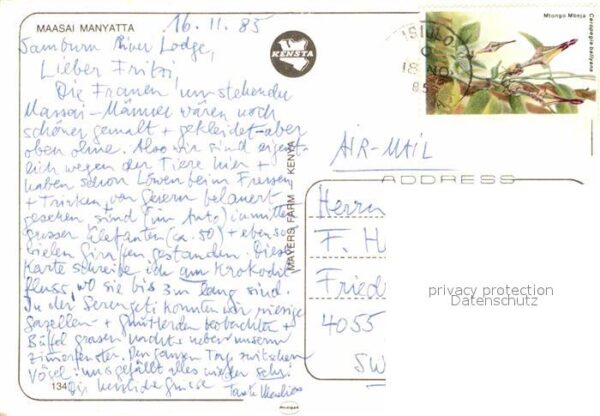 MAASAI MANYATTA
16. 11. 85
Samburu River Lodge,
Lieber Fritzi,
Die Frauen umstehender
Massai-Männer wären noch
schöner gemalt + gekleidet - aber
oben ohne. Also wir sind eigent-
lich wegen der Tiere hier +
haben schon Löwen beim Fressen
+ Trinken, von Geiern belauert
gesehen, sind (im Auto) inmitten
grosser Elefanten (ca. 50) + ebenso
vielen Giraffen gestanden. Diese
Karte schreibe ich am Krokodil
fluss, wo sie bis 3m lang sind.
In der Serengeti konnten wir riesige
Gazellen- + Gnuherden beobachten +
Büffel grasen nachts neben unserm
Zimmerfenster. Den ganzen Tag zwitschern
Vögel: uns gefällt alles wieder sehr.
Die herzliche Grüsse
134
KENSTA
MAYERS FARM - KENYA
ISIOLO
18 NO
85
Mtongo Mboja
Ceropegia ballyana
AIR-MAIL
ADDRESS
Herrn
F. H
Fried
4055
SW
privacy protection
Datenschutz